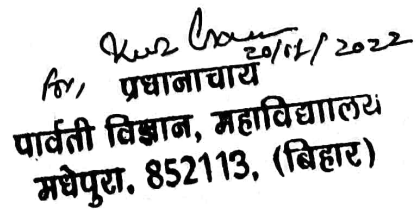 20/11/2022
for, प्रधानाचाय
पार्वती विज्ञान, महाविद्याालय
मधेपुरा, 852113, (बिहार)